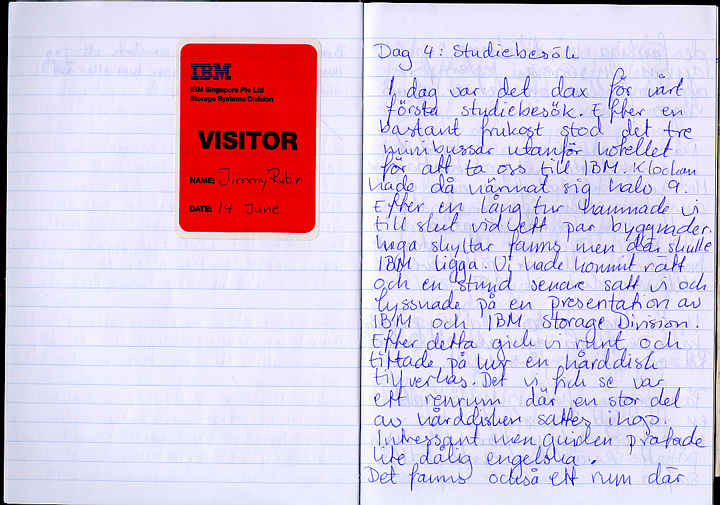 IBM
IBM Singapore Pte Ltd
Storage Systems Division
VISITOR
NAME: Jimmy Rubin
DATE: 14 June
Dag 4: Studiebesök
I dag var det dax för vårt
första studiebesök. Efter en
bastant frukost stod det tre
minibussar utanför hotellet
för att ta oss till IBM. Klockan
hade då närmat sig halv 9.
Efter en lång tur hamnade vi
till slut vid ett par byggnader.
Inga skyltar fanns men där skulle
IBM ligga. Vi hade kommit rätt
och en stund senare satt vi och
lyssnade på en presentation av
IBM och IBM Storage Division.
Efter detta gick vi runt och
tittade på hur en hårddisk
tillverkas. Det vi fick se var
ett renrum där en stor del
av hårddisken sattes ihop.
Intressant men guiden pratade
lite dålig engelska.
Det fanns också ett rum där